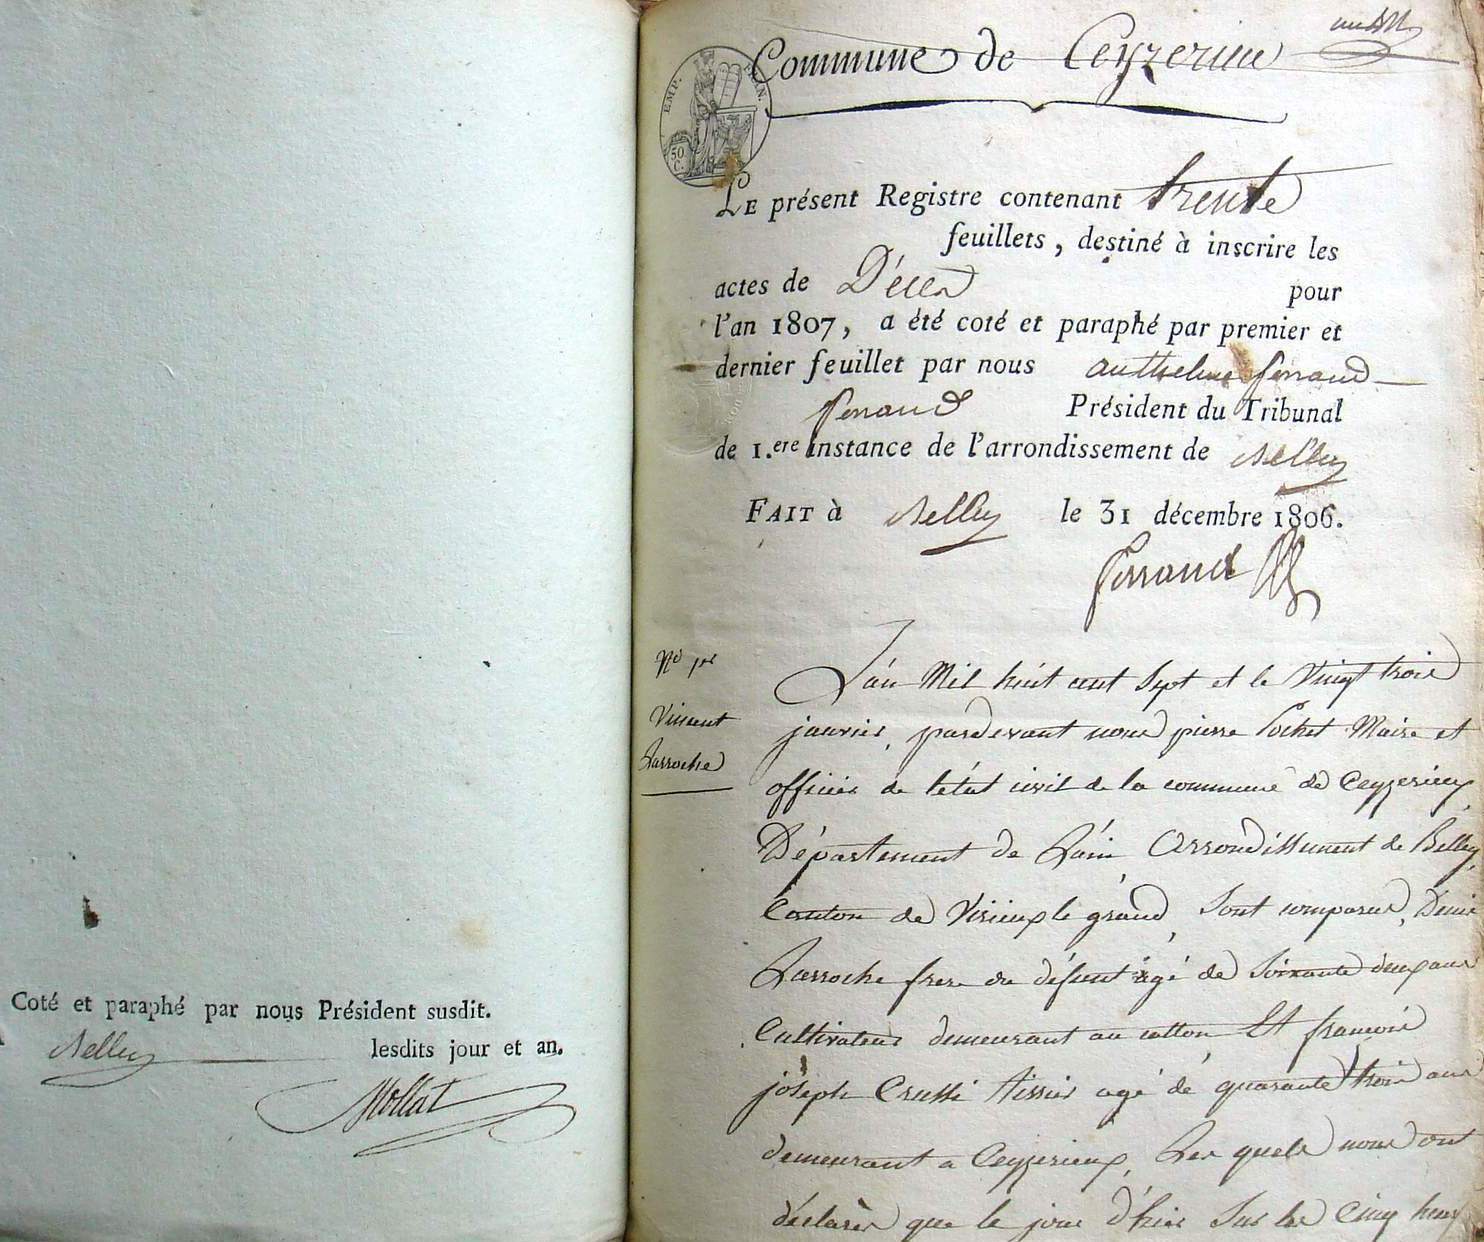 Coté et paraphé par nous Président susdit.
Belley lesdits jour et an.
Mollat
Commune de Ceyzerieu
EMP. FRAN.
50 C.
LE présent Registre contenant trente
feuillets, destiné à inscrire les
actes de Décès pour
l'an 1807, a été coté et paraphé par premier et
dernier feuillet par nous anthelme ferrand
ferrand Président du Tribunal
de 1.ere instance de l'arrondissement de Belley
FAIT à Belley le 31 décembre 1806.
ferrand
No 1er
Vincent
Larroche
L'án Mil huit cent Sept et le Vingt trois
janvier, pardevant nous pierre Pochet Maire et
officier de létat civil de la commune de Ceyzerieu
Département de L'ain Arrondissement de Belley,
Canton de Virieux le grand, Sont comparus, Denis
Larroche frere du défunt âgé de Soixante deux ans
Cultivateur demeurant au cotton, Et francois
joseph Crussi tissier agé de quarante trois ans
demeurant a Ceyzerieux, Les quels nous ont
déclarer que le jour d'hier Sur les Cinq heures